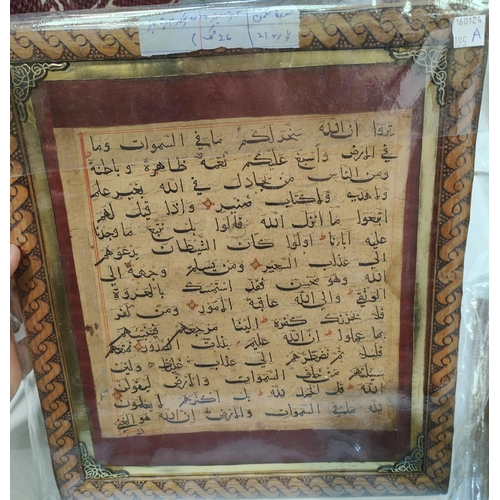 160124
195 A
تروا ان الله سخر لكم ما في السموات وما
في الارض واسبغ عليكم نعمه ظاهرة وباطنة
ومن الناس من يجادل في الله بغير علم
ولا هدى ولا كتاب منير واذا قيل لهم
اتبعوا ما انزل الله قالوا بل نتبع ما وجدنا
عليه اباءنا اولوا كان الشيطان يدعوهم
الى عذاب السعير ومن يسلم وجهه الى
الله وهو محسن فقد استمسك بالعروة
الوثقى والى الله عاقبة الامور ومن كفر
فلا يحزنك كفره الينا مرجعهم فننبئهم
بما عملوا ان الله عليم بذات الصدور نمتعهم
قليلا ثم نضطرهم الى عذاب غليظ ولئن
سألتهم من خلق السموات والارض ليقولن
الله قل الحمد لله بل اكثرهم لا يعلمون
لله ما في السموات والارض ان الله هو الغني